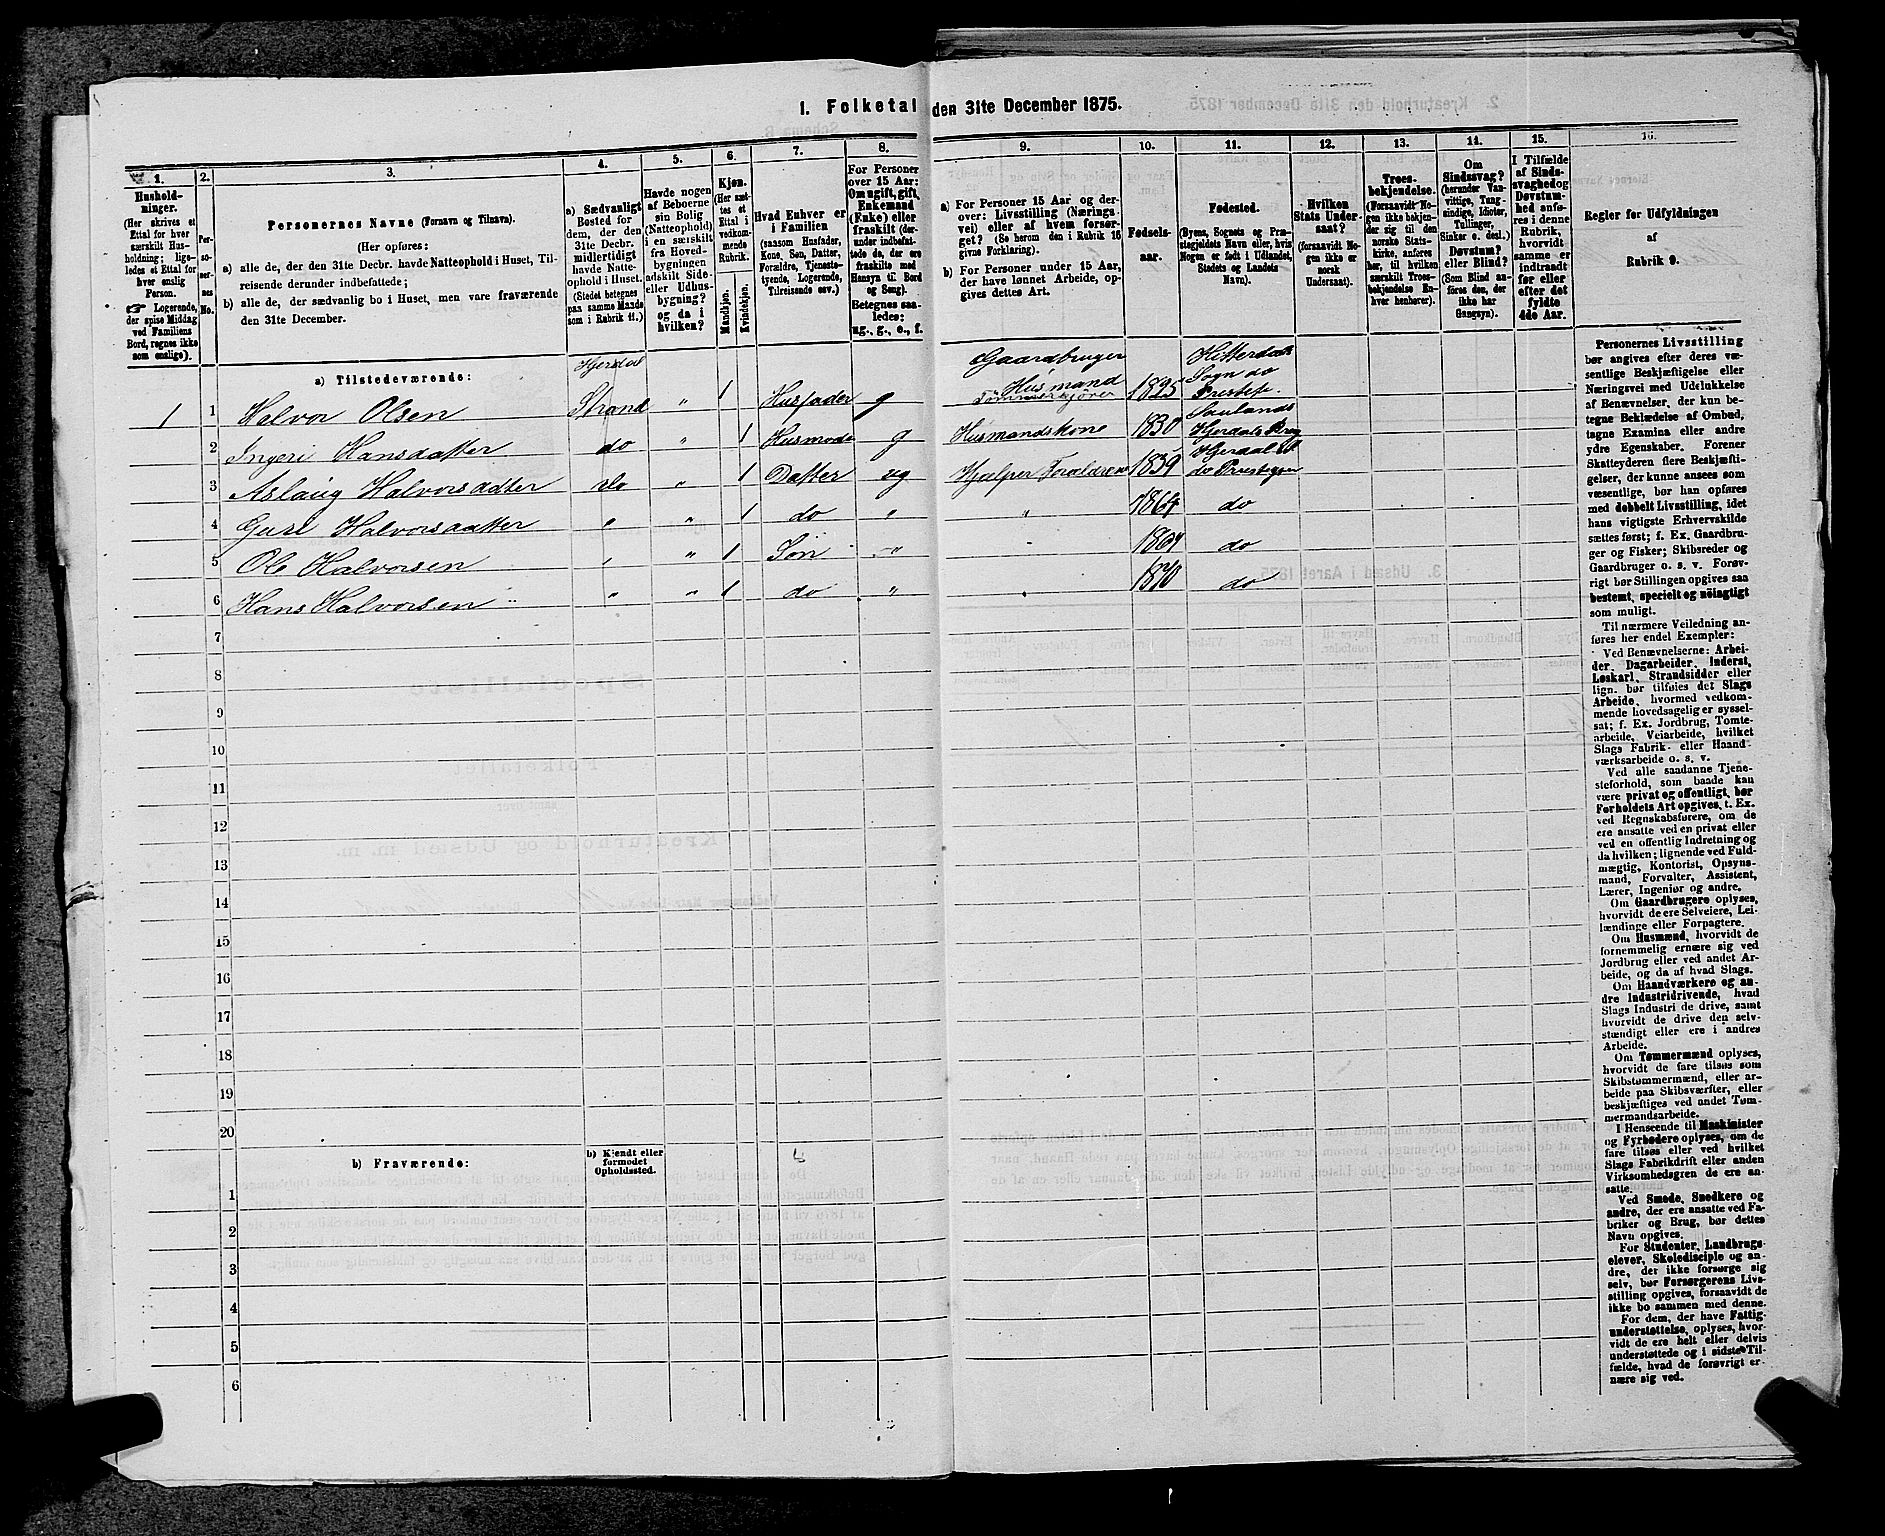 1. Folketal den 31te December 1875.
1.
Hushold-
ninger.
(Her skrives et
Ettal for hver
særskilt Hus-
holdning; lige-
ledes et Ettal for
hver enslig
Person.
☞ Logerende,
der spise Middag
ved Familiens
Bord, regnes ikke
som enslige).
2.
Per-
so-
ner-
nes
No.
3.
Personernes Navne (Fornavn og Tilnavn).
(Her opføres:
a) alle de, der den 31te Decbr. havde Natteophold i Huset, Til-
reisende derunder indbefattede;
b) alle de, der sædvanlig bo i Huset, men vare fraværende
den 31te December.
4.
a) Sædvanligt
Bosted for
dem, der den
31te Decbr.
midlertidigt
havde Natte-
ophold i Huset.
(Stedet betegnes
paa samme Maade
som i Rubrik 11.)
5.
Havde nogen
af Beboerne
sin Bolig
(Natteophold)
i en særskilt
fra Hoved-
bygningen
adskilt Side-
eller Udhus-
bygning?
og da i
hvilken?
6.
Kjøn.
(Her sæt-
tes et
Ettal i
vedkom-
mende
Rubrik.
Mandkjøn.
Kvindekjøn.
7.
Hvad Enhver er
i Familien
(saasom Husfader,
Kone, Søn, Datter,
Forældre, Tjeneste-
tyende, Logerende,
Tilreisende osv.)
8.
For Personer
over 15 Aar:
Om ugift, gift,
Enkemand
(Enke) eller
fraskilt (der-
under indbefat-
tede de, der
ere fraskilte med
Hensyn til Bord
og Seng).
Betegnes saa-
ledes:
ug., g., e., f.
9.
a) For Personer 15 Aar og der-
over: Livsstilling (Nærings-
vei) eller af hvem forsør-
get? (Se herom den i Rubrik 16
givne Forklaring).
b) For Personer under 15 Aar,
der have lønnet Arbeide, op-
gives dettes Art.
10.
Fødsels-
aar.
11.
Fødested.
(Byens, Sognets og Præ-
stegjeldets Navn eller, hvis
Nogen er født i Udlandet,
Stedets og Landets
Navn).
12.
Hvilken
Stats Under-
saat?
(forsaavidt No-
gen ikke er
norsk
Undersaat).
13.
Troes-
bekjendelse.
(Forsaavidt No-
gen ikke bekjen-
der sig til den
norske Stats-
kirke, anføres
her, til hvilken
særskilt Troes-
bekjendelse En-
hver henhører).
14.
Om
Sindssvag?
(herunder Van-
vittige, Tung-
sindige, Idioter,
Tullinger,
Sinker o. desl.)
Døvstum?
eller Blind?
(Som Blind an-
føres den, der
ikke har
Gangsyn).
15.
I Tilfælde
af Sinds-
svaghed og
Døvstum-
hed anfø-
res i denne
Rubrik,
hvorvidt
samme er
indtraadt
før eller
efter det
fyldte
4de Aar.
16.
Regler for Udfyldningen
af
Rubrik 9.
a) Tilstedeværende:
Hjerdal
Gaardbruger
Hitterdal
Sogn do
1 1 Halvor Olsen Strand " 1 Husfader g Husmand Tømmerkjører 1825 Prestef.
Saulands
2 Ingeri Hansdatter do " 1 Husmode g Husmandskone 1830 Hjerdals Præ
Hjerdal
3 Aslaug Halvorsdatter do " 1 Datter ug Hjælper Foraldrene 1859 do Prestegjen
4 Guri Halvorsdatter " " 1 do " " 1864 do
5 Ole Halvorsen " " 1 Søn " 1867 do
6 Hans Halvorsen " " 1 do " 1870 do
7
8
9
10
11
12
13
14
15
16
17
18
19
20
b) Fraværende:
b) Kjendt eller
formodet
Opholdssted.
1
2
3
4
5
6
Personernes Livsstilling
bør angives efter deres væ-
sentlige Beskjæftigelse eller
Næringsvei med Udelukkelse
af Benævnelser, der kun be-
tegne Beklædelse af Ombud,
tagne Examina eller andre
ydre Egenskaber. Forener
Skatteyderen flere Beskjæfti-
gelser, der kunne ansees som
væsentlige, bør han opføres
med dobbelt Livsstilling, idet
hans vigtigste Erhvervskilde
sættes først; f. Ex. Gaardbru-
ger og Fisker; Skibsreder og
Gaardbruger o. s. v. Forøv-
rigt bør Stillingen opgives saa
bestemt, specielt og nøiagtigt
som muligt.
Til nærmere Veiledning an-
føres her endel Exempler:
Ved Benævnelserne: Arbei-
der, Dagarbeider, Inderst,
Løskarl, Strandsidder eller
lign. bør tilføies det Slags
Arbeide, hvormed vedkom-
mende hovedsagelig er syssel-
sat; f. Ex. Jordbrug, Tomte-
arbeide, Veiarbeide, hvilket
Slags Fabrik- eller Haand-
værksarbeide o. s. v.
Ved alle saadanne Tjene-
steforhold, som baade kan
være privat og offentligt, bør
Forholdets Art opgives, t. Ex.
ved Regnskabsførere, om de
ere ansatte ved en privat eller
ved en offentlig Indretning og
da hvilken; lignende ved Fuld-
mægtig, Kontorist, Opsyns-
mand, Forvalter, Assistent,
Lærer, Ingeniør og andre.
Om Gaardbrugere oplyses,
hvorvidt de ere Selveiere, Lei-
lændinge eller Forpagtere.
Om Husmænd, hvorvidt de
fornemmelig ernære sig ved
Jordbrug eller ved andet Ar-
beide, og da af hvad Slags.
Om Haandværkere og an-
dre Industridrivende, hvad
Slags Industri de drive, samt
hvorvidt de drive den selv-
stændigt eller ere i andres
Arbeide.
Om Tømmermænd oplyses,
hvorvidt de fare tilsøs som
Skibstømmermænd, eller ar-
beide paa Skibsværfter, eller
beskjæftiges ved andet Tøm-
mermandsarbeide.
I Henseende til Maskinister
og Fyrbødere oplyses, om de
fare tilsøs eller ved hvilket
Slags Fabrikdrift eller anden
Virksomhedsgren de ere an-
satte.
Ved Smede, Snedkere og
andre, der ere ansatte ved Fa-
briker og Brug, bør dettes
Navn opgives.
For Studenter, Landbrugs-
elever, Skoledisciple og an-
dre, der ikke forsørge sig
selv, bør Forsørgerens Livs-
stilling opgives, forsaavidt de
ikke bo sammen med denne.
For dem, der have Fattig-
understøttelse, oplyses, hvor-
vidt de ere helt eller delvis
understøttede og i sidste Til-
fælde, hvad de forøvrigt er-
nære sig ved.